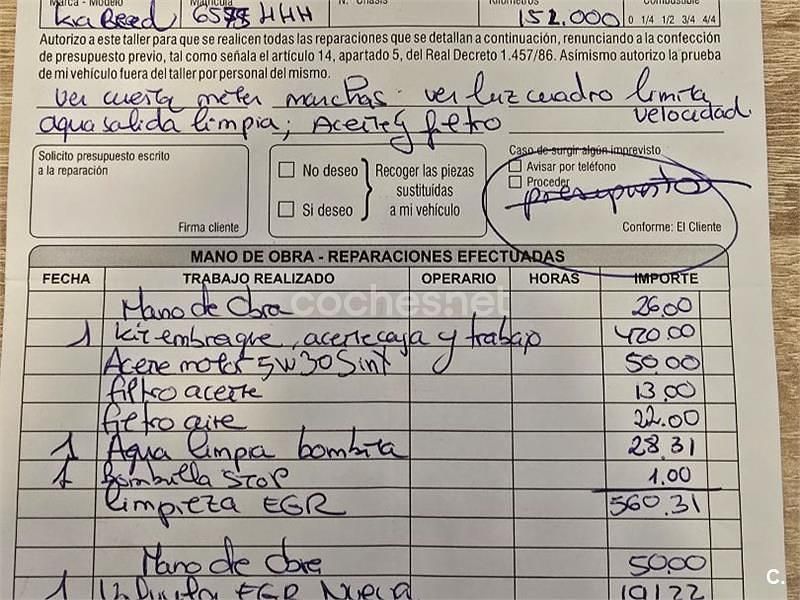 Marca - Modelo Matrícula N.º Chasis Kilómetros Combustible
6575 HHH 152.000 0 1/4 1/2 3/4 4/4
Autorizo a este taller para que se realicen todas las reparaciones que se detallan a continuación, renunciando a la confección
de presupuesto previo, tal como señala el artículo 14, apartado 5, del Real Decreto 1.457/86. Asímismo autorizo la prueba
de mi vehículo fuera del taller por personal del mismo.
ver cuesta meter marchas. ver luz cuadro limita
velocidad.
agua salida limpia; Aceite y filtro
Solicito presupuesto escrito
a la reparación
Firma cliente
No deseo
Si deseo
Recoger las piezas
sustituídas
a mi vehículo
Caso de surgir algún imprevisto
Avisar por teléfono
Proceder
presupuesto
Conforme: El Cliente
MANO DE OBRA - REPARACIONES EFECTUADAS
FECHA TRABAJO REALIZADO OPERARIO HORAS IMPORTE
coches.net
Mano de Obra 26.00
1 kit embrague, aceite caja y trabajo 420.00
Aceite motor 5W30 Sint 50.00
filtro aceite 13.00
filtro aire 22.00
1 Agua limpia bombita 28.31
1 Bombilla STOP 1.00
limpieza EGR 560.31
Mano de Obra 50.00
1 EGR Nueva 191.22
C.